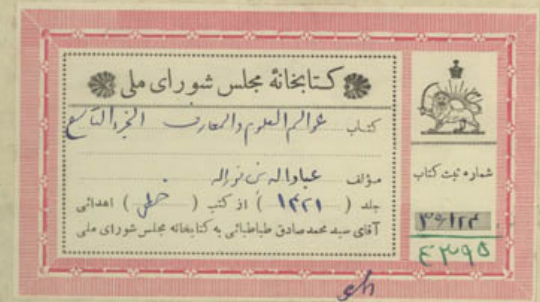 کتابخانهٔ مجلس شورای ملی
کتاب عوالم العلوم والمعارف الجزء التاسع
مؤلف عبدالله بن نورالله
جلد (۱۴۲۱) از کتب (خطی) اهدائی
آقای سید محمد صادق طباطبائی به کتابخانه مجلس شورای ملی
شماره ثبت کتاب
۳۶۱۲۴
۴۳۹۵